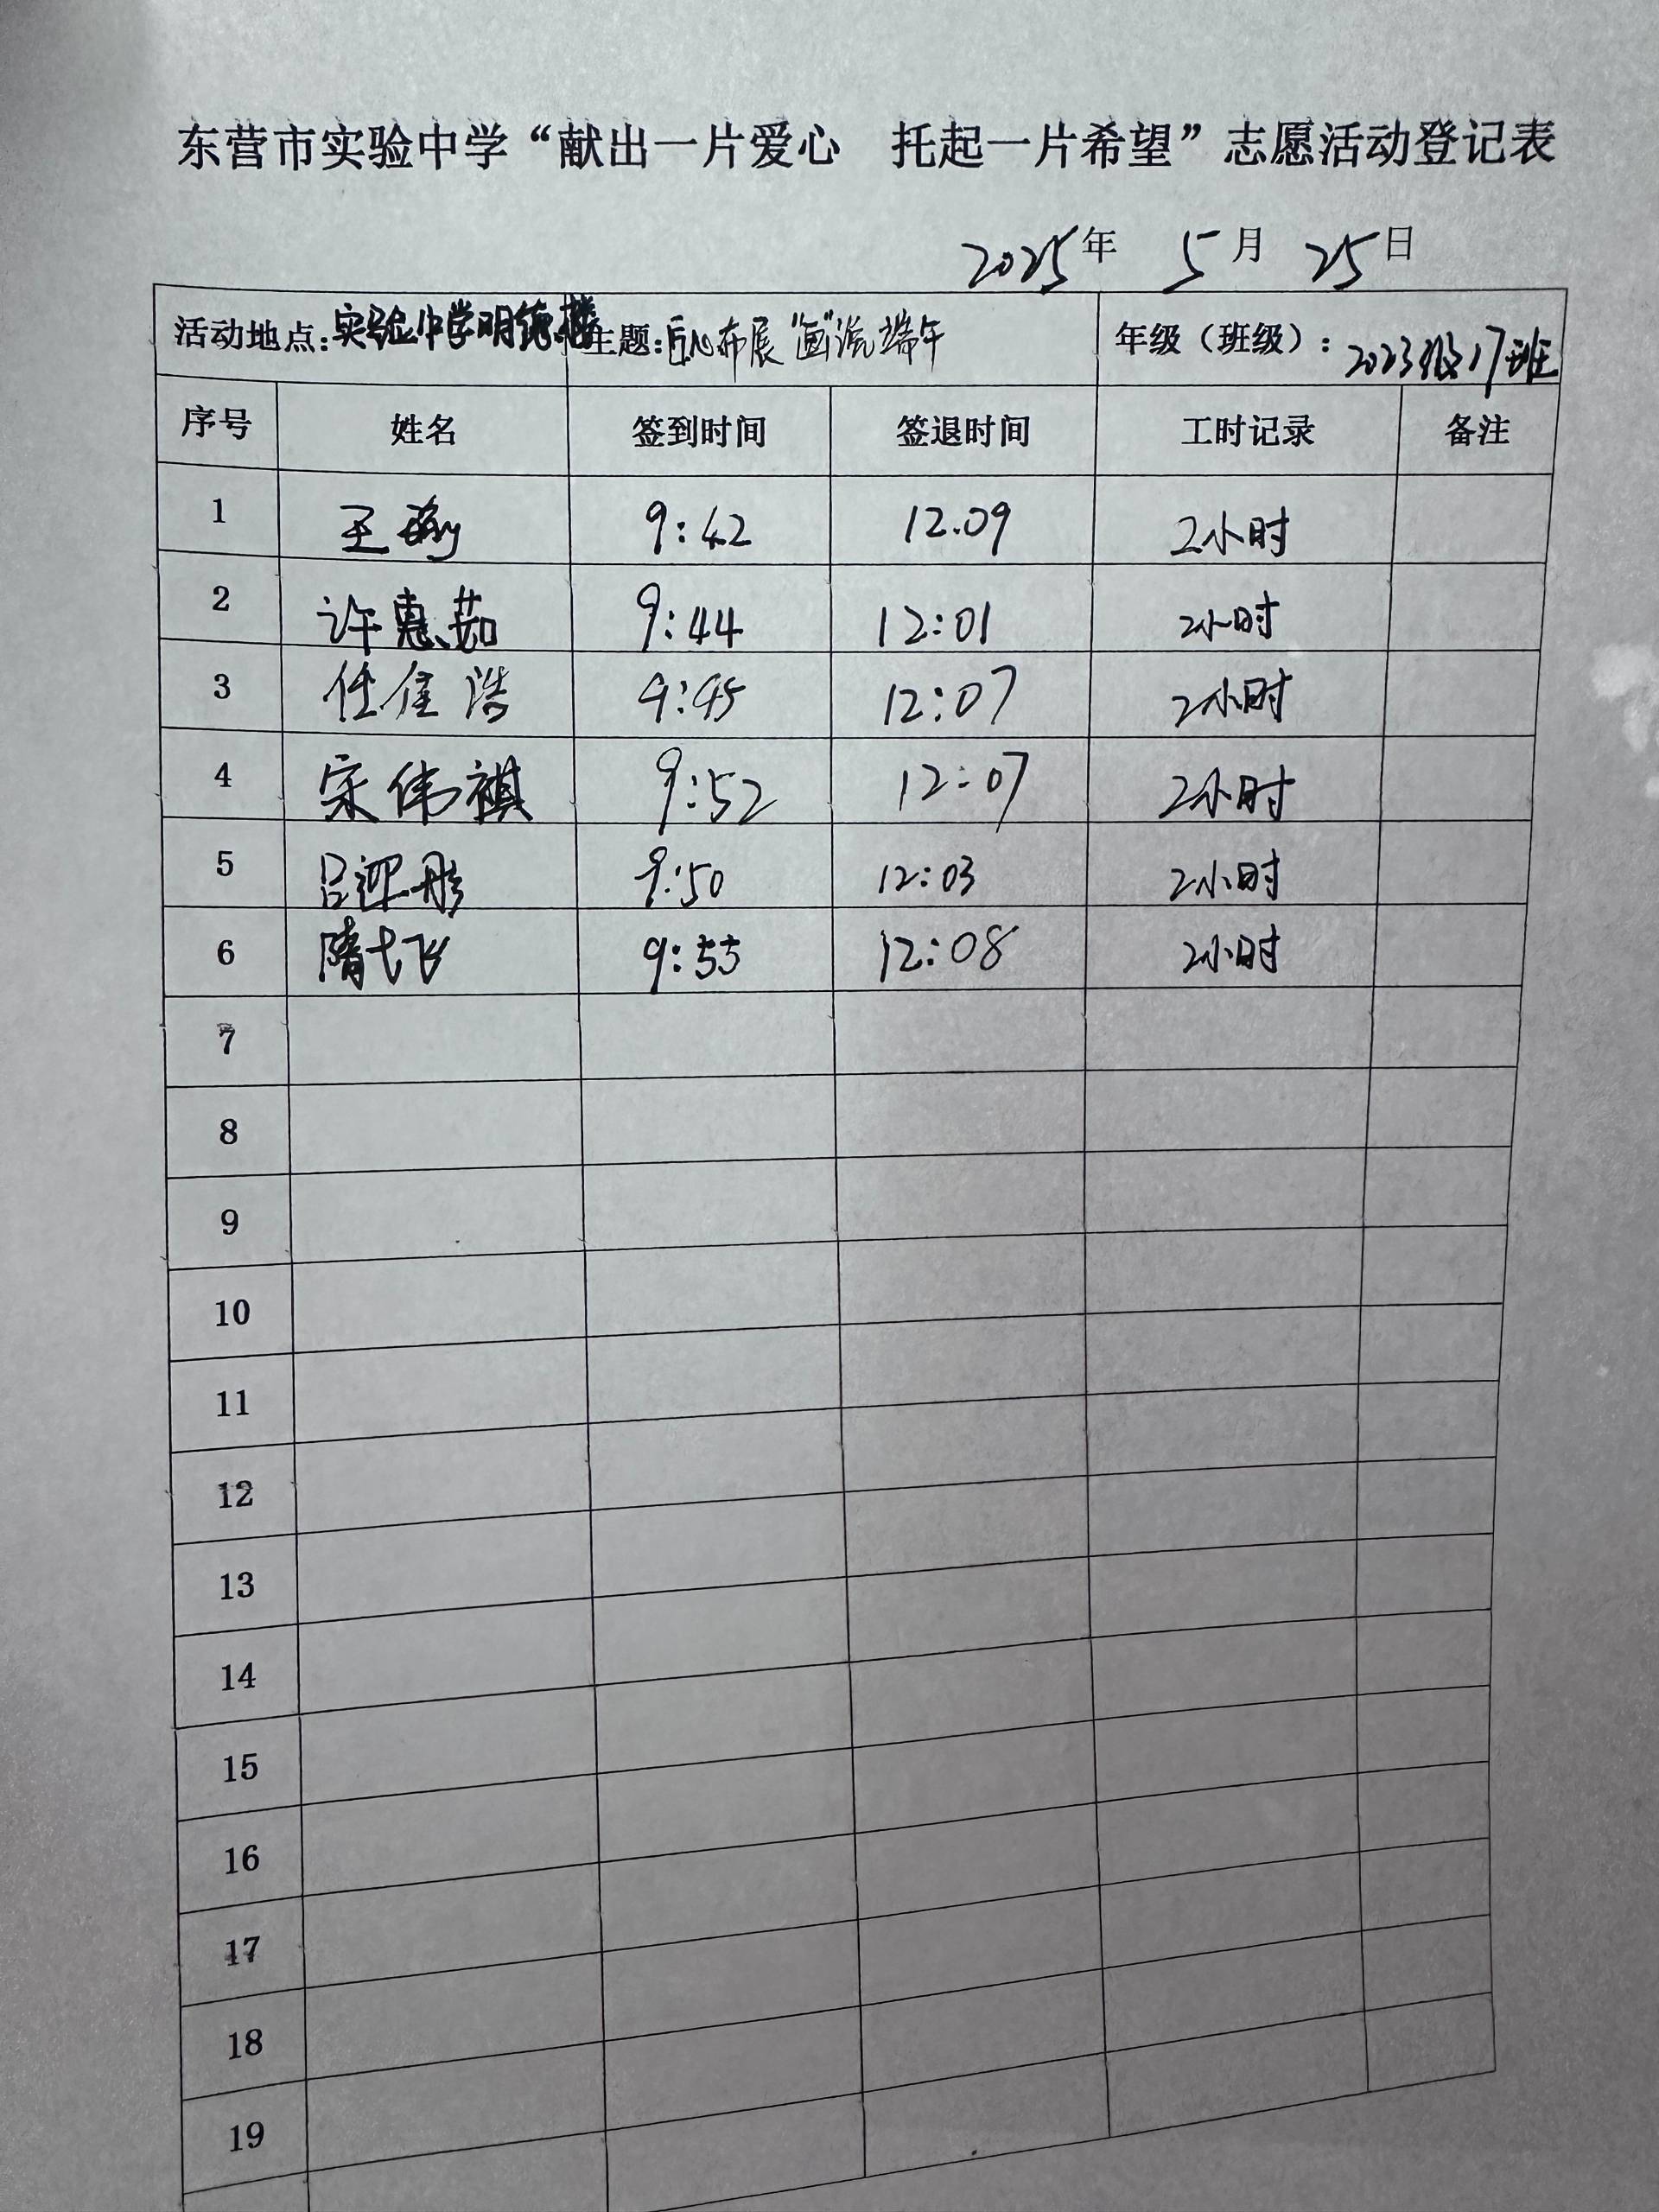 东营市实验中学“献出一片爱心 托起一片希望”志愿活动登记表
2025年 5月 25日
活动地点：实验中学明德楼 主题：匠心布展“画”说端午 年级（班级）：2023级17班
序号 姓名 签到时间 签退时间 工时记录 备注
1 王瑜 9:42 12.09 2小时
2 许惠茹 9:44 12:01 2小时
3 任佳浩 9:45 12:07 2小时
4 宋伟祺 9:52 12:07 2小时
5 吕迎彤 9:50 12:03 2小时
6 隋弋飞 9:55 12:08 2小时
7
8
9
10
11
12
13
14
15
16
17
18
19